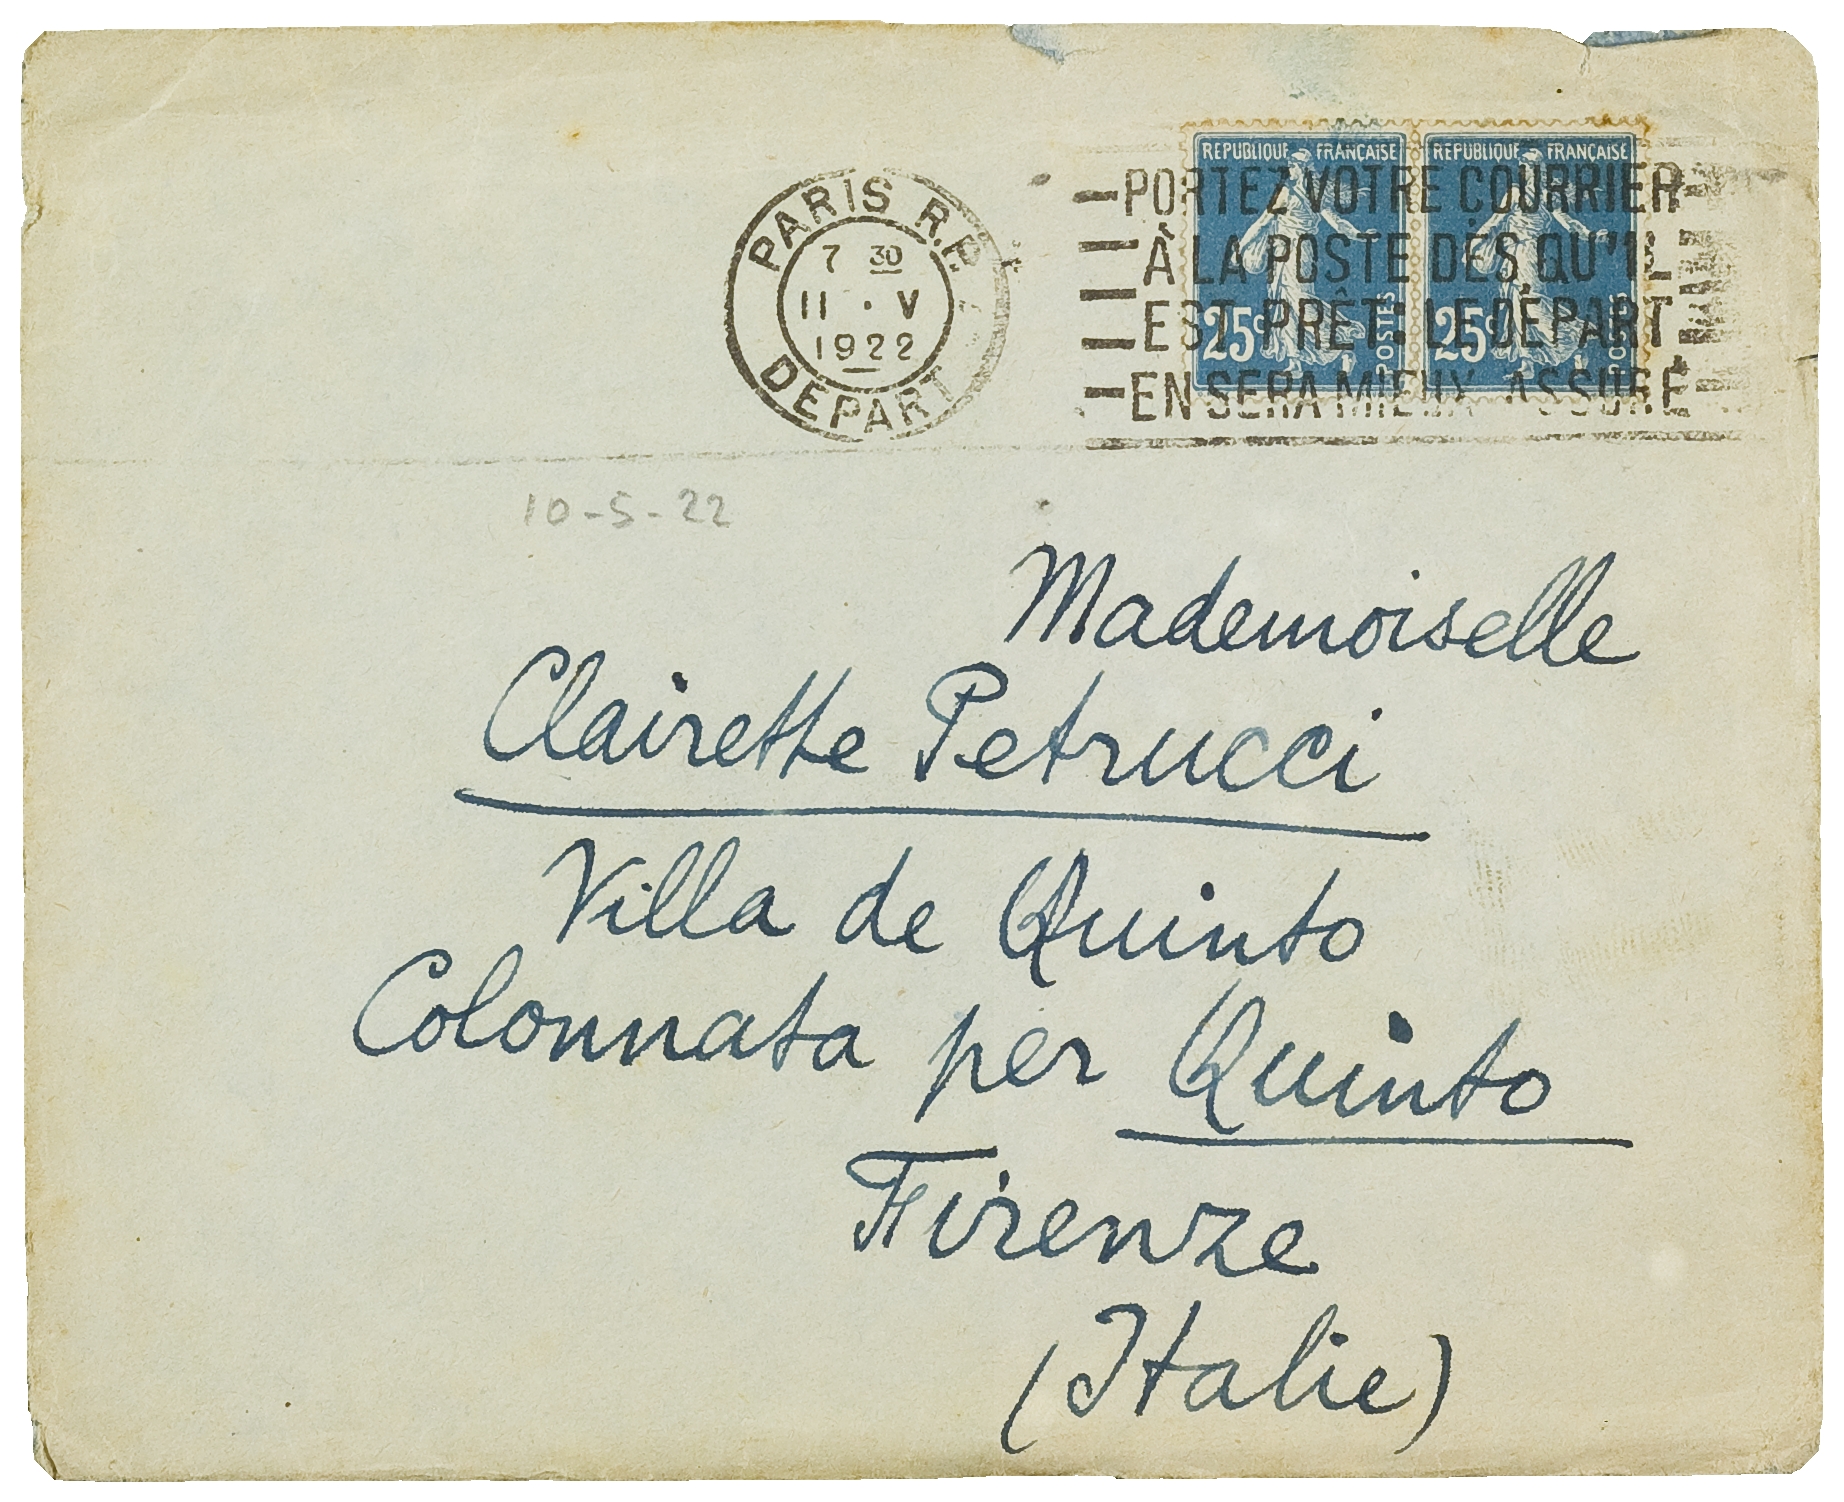 PARIS R.P.
7 30
11 · V
1922
DEPART
REPUBLIQUE FRANÇAISE
25c
POSTES
REPUBLIQUE FRANÇAISE
25c
PORTEZ VOTRE COURRIER
À LA POSTE DÈS QU'IL
EST PRÊT: LE DÉPART
EN SERA MIEUX ASSURÉ
10-5-22
Mademoiselle
Clairette Petrucci
Villa de Quinto
Colonnata per Quinto
Firenze
(Italie)